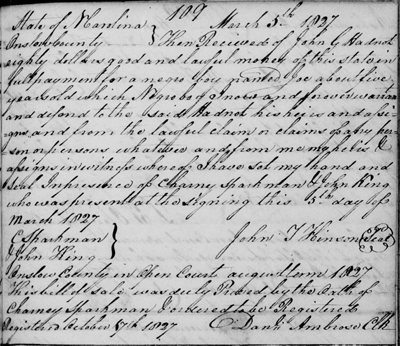 109
State of N Carolina March 5th 1827
Onslow County } Then Recieved of John G Hadnot
eighty dollars good and lawful money of this state in
full payment for a negro boy named Joe about five
years old which Negro boy I now and forever warrant
and defend to the said Hadnot his heirs and assi
gns and from the lawful claim or claims of any per
son or persons whatever and from me my heirs &
assigns in witness whereof I have set my hand and
Seal In presence of Charney Sparkman & John King
who was present at the signing this 5th day of
March 1827
C Sparkman } John T Hinson (Seal)
John King
Onslow County in Open Court august Term 1827
This bill of sale was duly Proved by the Oath of
Charney Sparkman & ordered to be Registered
Registered October 7th 1827 Danl Ambrose Clk